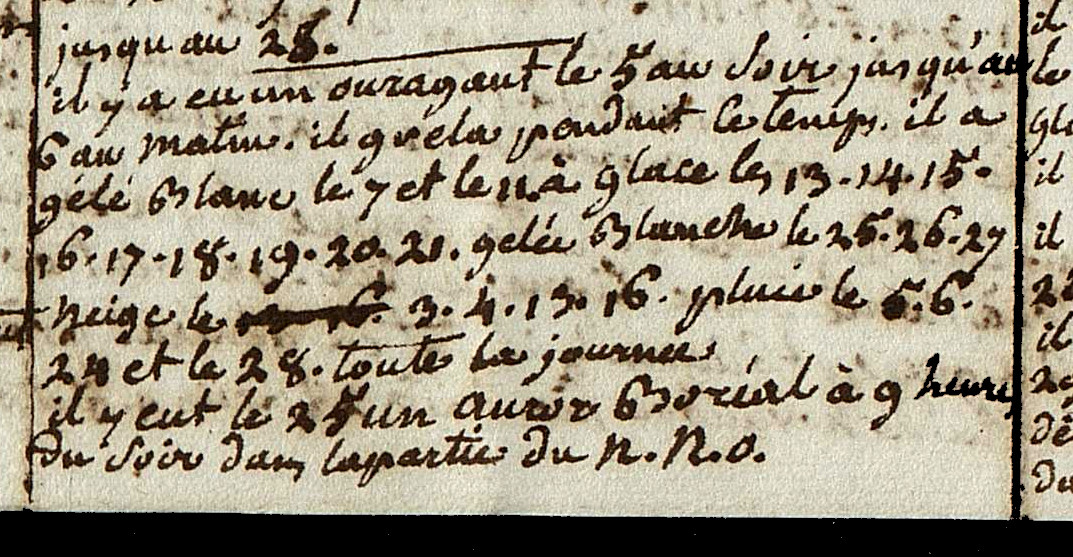 jusqu'au 28.
il y a eu un ouragant le 5 au Soir jusqu'au
6 au matin. il grela pendant ce temps. il a
gelé Blanc le 7 et le 11. à glace les 13. 14. 15.
16. 17. 18. 19. 20. 21. gelée Blanche le 25. 26. 27
Neige le 3. 4. 13. 16. pluie le 5. 6.
24 et le 28. toute la journee
il y eut le 25 un auror Boréal à 9 heures
du Soir dans la partie du N. N. O.